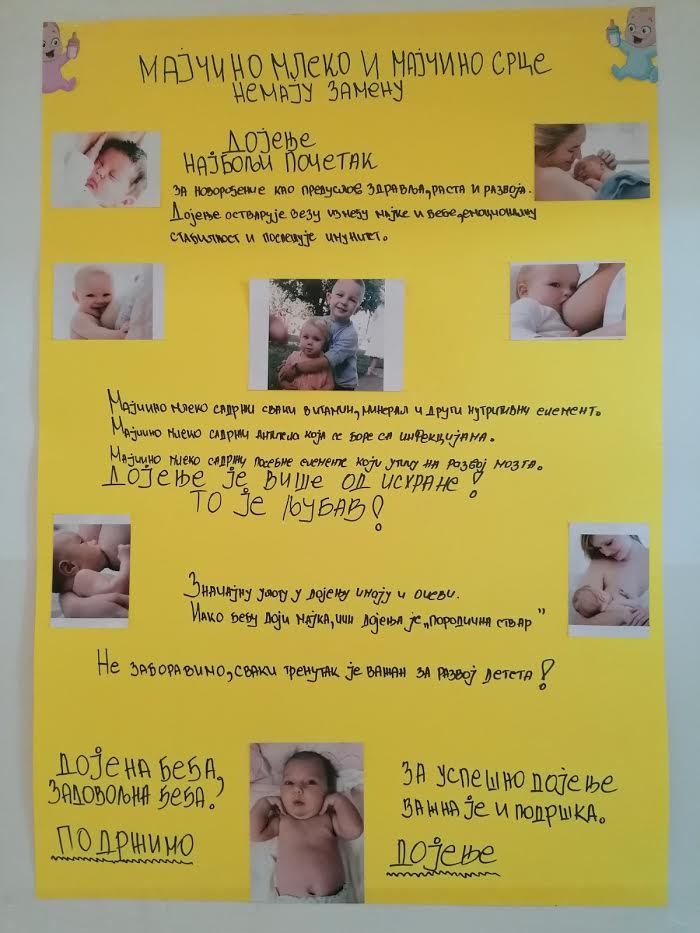 МАЈЧИНО МЛЕКО И МАЈЧИНО СРЦЕ
НЕМАЈУ ЗАМЕНУ
ДОЈЕЊЕ
НАЈБОЉИ ПОЧЕТАК
ЗА НОВОРОЂЕНЧЕ КАО ПРЕДУСЛОВ ЗДРАВЉА, РАСТА И РАЗВОЈА.
ДОЈЕЊЕ ОСТВАРУЈЕ ВЕЗУ ИЗМЕЂУ МАЈКЕ И БЕБЕ, ЕМОЦИОНАЛНУ
СТАБИЛНОСТ И ПОСПЕШУЈЕ ИМУНИТЕТ.
МАЈЧИНО МЛЕКО САДРЖИ СВАКИ ВИТАМИН, МИНЕРАЛ И ДРУГИ НУТРИТИВНИ ЕЛЕМЕНТ.
МАЈЧИНО МЛЕКО САДРЖИ АНТИТЕЛА КОЈА СЕ БОРЕ СА ИНФЕКЦИЈАМА.
МАЈЧИНО МЛЕКО САДРЖИ ПОСЕБНЕ ЕЛЕМЕНТЕ КОЈИ УТИЧУ НА РАЗВОЈ МОЗГА.
ДОЈЕЊЕ ЈЕ ВИШЕ ОД ИСХРАНЕ!
ТО ЈЕ ЉУБАВ!
ЗНАЧАЈНУ УЛОГУ У ДОЈЕЊУ ИМАЈУ И ОЧЕВИ.
ИАКО БЕБУ ДОЈИ МАЈКА, ЧИН ДОЈЕЊА ЈЕ „ПОРОДИЧНА СТВАР"
НЕ ЗАБОРАВИМО, СВАКИ ТРЕНУТАК ЈЕ ВАЖАН ЗА РАЗВОЈ ДЕТЕТА!
ДОЈЕНА БЕБА,
ЗАДОВОЉНА БЕБА.
ПОДРЖИМО
ЗА УСПЕШНО ДОЈЕЊЕ
ВАЖНА ЈЕ И ПОДРШКА.
ДОЈЕЊЕ